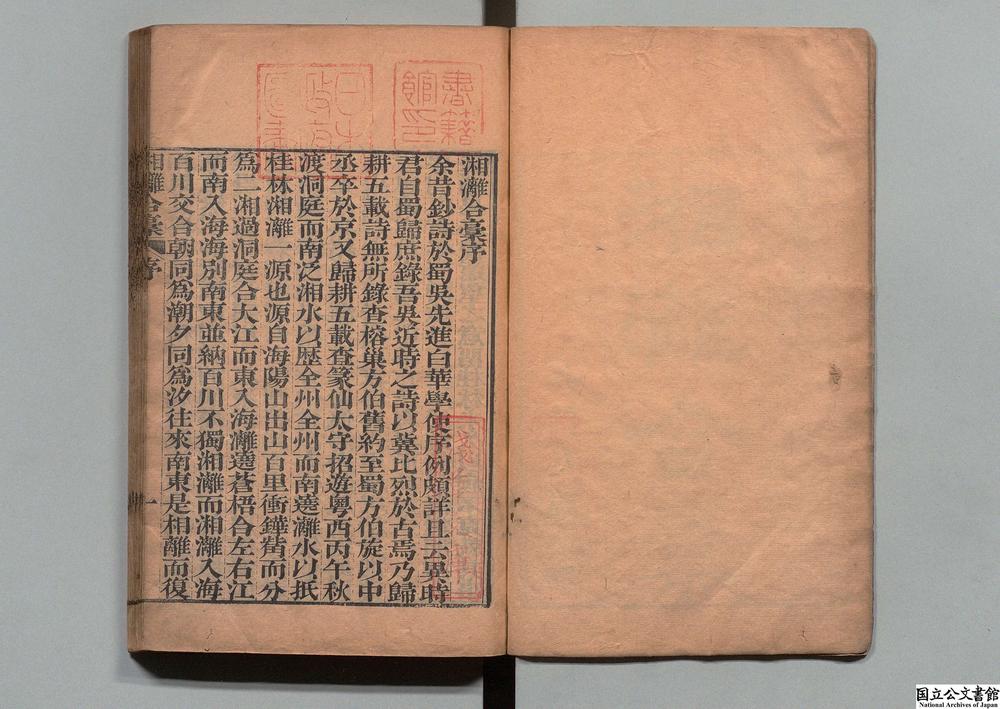 湘灕合稾序
余昔鈔詩於蜀吳先進白華學使序例頗詳且云異時
君自蜀歸庶錄吾吳近時之詩以冀比烈於古焉乃歸
耕五載詩無所錄查榕巢方伯舊約至蜀方伯旋以中
丞卒於京又歸耕五載查篆仙太守招遊粵西丙午秋
渡洞庭而南泛湘水以歷全州全州而南遶灕水以抵
桂林湘灕一源也源自海陽山出山百里衝鏵觜而分
爲二湘過洞庭合大江而東入海灕遶蒼梧合左右江
而南入海海別南東並納百川不獨湘灕而湘灕入海
百川交合朝同爲潮夕同爲汐往來南東是相離而復
湘灕合稾 序 一
書籍館印
日本政府圖書
国立公文書館
National Archives of Japan